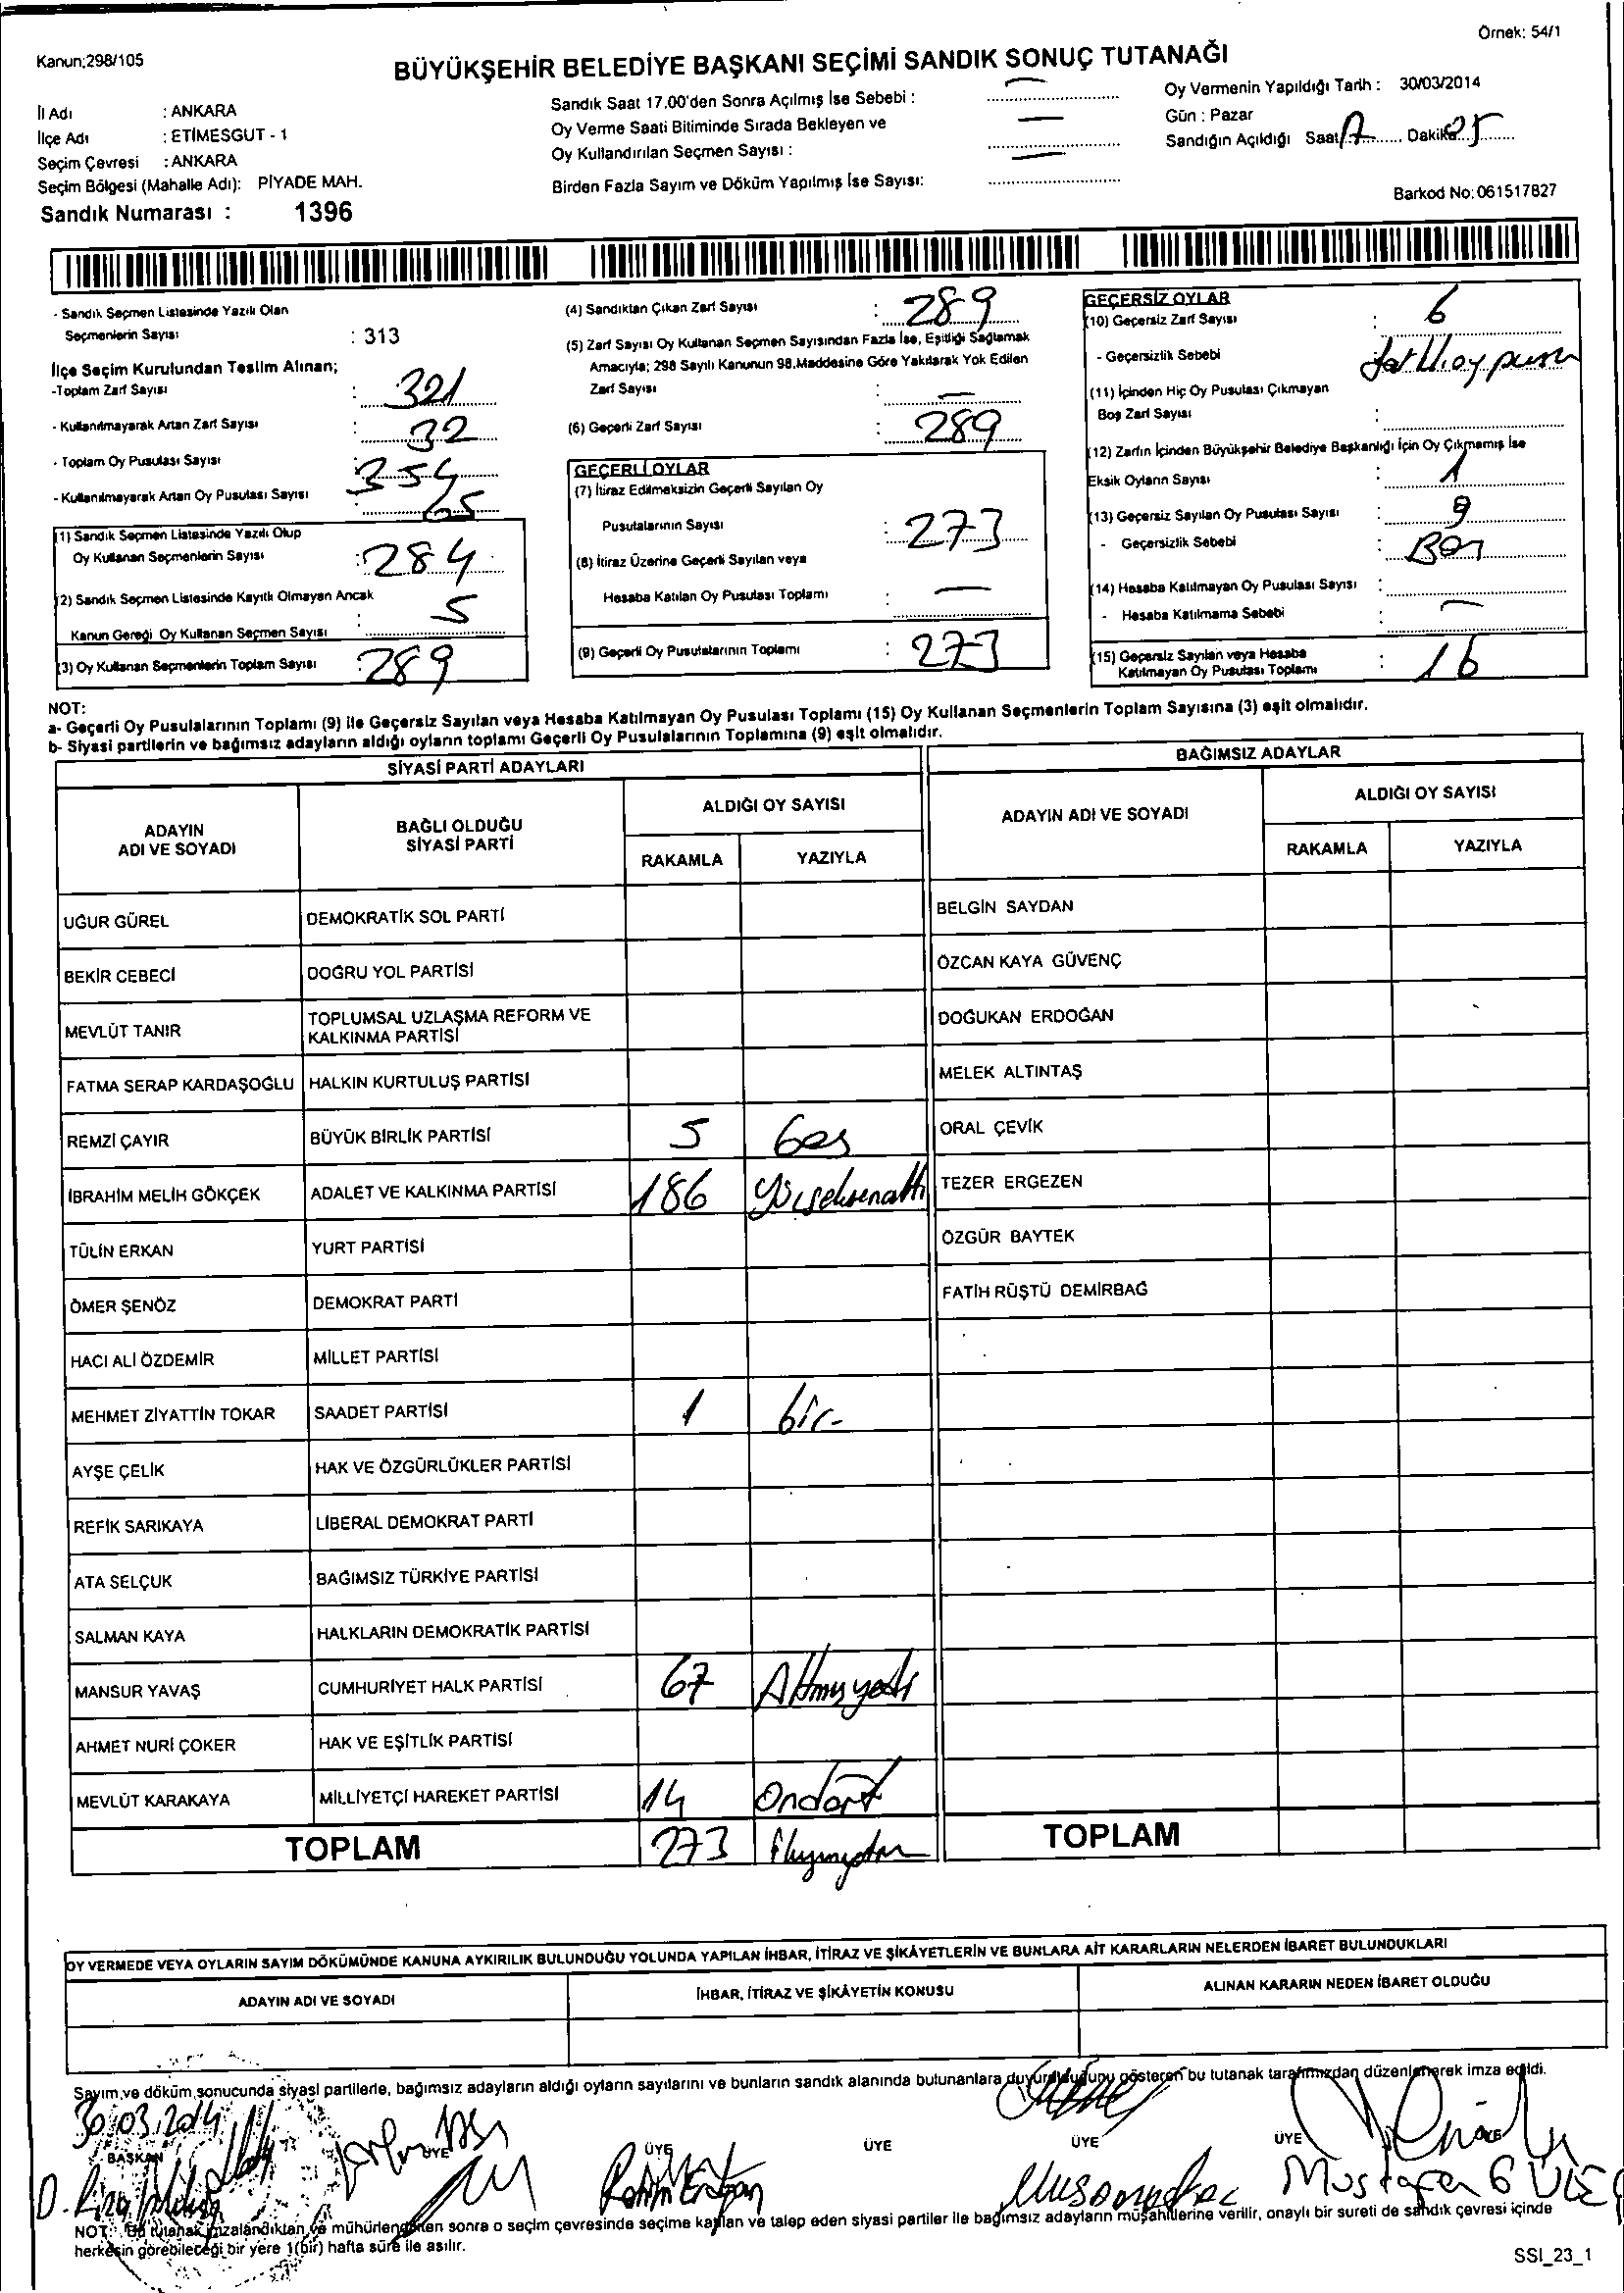 Örnek: 54/1
Kanun;298/105
BÜYÜKŞEHİR BELEDİYE BAŞKANI SEÇİMİ SANDIK SONUÇ TUTANAĞI
İl Adı : ANKARA
İlçe Adı : ETİMESGUT - 1
Seçim Çevresi : ANKARA
Seçim Bölgesi (Mahalle Adı): PİYADE MAH.
Sandık Numarası : 1396
Sandık Saat 17.00'den Sonra Açılmış İse Sebebi : —
Oy Verme Saati Bitiminde Sırada Bekleyen ve —
Oy Kullandırılan Seçmen Sayısı : —
Birden Fazla Sayım ve Döküm Yapılmış İse Sayısı:
Oy Vermenin Yapıldığı Tarih : 30/03/2014
Gün : Pazar
Sandığın Açıldığı Saat 17 Dakika 05
Barkod No: 061517827
- Sandık Seçmen Listesinde Yazılı Olan
Seçmenlerin Sayısı : 313
İlçe Seçim Kurulundan Teslim Alınan;
-Toplam Zarf Sayısı : 321
- Kullanılmayarak Artan Zarf Sayısı : 32
- Toplam Oy Pusulası Sayısı : 354
- Kullanılmayarak Artan Oy Pusulası Sayısı : 65
(1) Sandık Seçmen Listesinde Yazılı Olup
Oy Kullanan Seçmenlerin Sayısı : 284
(2) Sandık Seçmen Listesinde Kayıtlı Olmayan Ancak
Kanun Gereği Oy Kullanan Seçmen Sayısı : 5
(3) Oy Kullanan Seçmenlerin Toplam Sayısı : 289
(4) Sandıktan Çıkan Zarf Sayısı : 289
(5) Zarf Sayısı Oy Kullanan Seçmen Sayısından Fazla İse, Eşitliği Sağlamak
Amacıyla; 298 Sayılı Kanunun 98.Maddesine Göre Yakılarak Yok Edilen
Zarf Sayısı : —
(6) Geçerli Zarf Sayısı : 289
GEÇERLİ OYLAR
(7) İtiraz Edilmeksizin Geçerli Sayılan Oy
Pusulalarının Sayısı : 273
(8) İtiraz Üzerine Geçerli Sayılan veya
Hesaba Katılan Oy Pusulası Toplamı : —
(9) Geçerli Oy Pusulalarının Toplamı : 273
GEÇERSİZ OYLAR
(10) Geçersiz Zarf Sayısı : 6
- Geçersizlik Sebebi
(11) İçinden Hiç Oy Pusulası Çıkmayan
Boş Zarf Sayısı :
(12) Zarfın İçinden Büyükşehir Belediye Başkanlığı İçin Oy Çıkmamış İse
Eksik Oyların Sayısı : 1
(13) Geçersiz Sayılan Oy Pusulası Sayısı : 9
- Geçersizlik Sebebi :
(14) Hesaba Katılmayan Oy Pusulası Sayısı :
- Hesaba Katılmama Sebebi : —
(15) Geçersiz Sayılan veya Hesaba
Katılmayan Oy Pusulası Toplamı : 16
NOT:
a- Geçerli Oy Pusulalarının Toplamı (9) ile Geçersiz Sayılan veya Hesaba Katılmayan Oy Pusulası Toplamı (15) Oy Kullanan Seçmenlerin Toplam Sayısına (3) eşit olmalıdır.
b- Siyasi partilerin ve bağımsız adayların aldığı oyların toplamı Geçerli Oy Pusulalarının Toplamına (9) eşit olmalıdır.
SİYASİ PARTİ ADAYLARI
ADAYIN ADI VE SOYADI BAĞLI OLDUĞU SİYASİ PARTİ ALDIĞI OY SAYISI
RAKAMLA YAZIYLA
UĞUR GÜREL DEMOKRATİK SOL PARTİ
BEKİR CEBECİ DOĞRU YOL PARTİSİ
MEVLÜT TANIR TOPLUMSAL UZLAŞMA REFORM VE KALKINMA PARTİSİ
FATMA SERAP KARDAŞOĞLU HALKIN KURTULUŞ PARTİSİ
REMZİ ÇAYIR BÜYÜK BİRLİK PARTİSİ 5 beş
İBRAHİM MELİH GÖKÇEK ADALET VE KALKINMA PARTİSİ 186 Yüzseksenaltı
TÜLİN ERKAN YURT PARTİSİ
ÖMER ŞENÖZ DEMOKRAT PARTİ
HACI ALİ ÖZDEMİR MİLLET PARTİSİ
MEHMET ZİYATTİN TOKAR SAADET PARTİSİ 1 bir
AYŞE ÇELİK HAK VE ÖZGÜRLÜKLER PARTİSİ
REFİK SARIKAYA LİBERAL DEMOKRAT PARTİ
ATA SELÇUK BAĞIMSIZ TÜRKİYE PARTİSİ
SALMAN KAYA HALKLARIN DEMOKRATİK PARTİSİ
MANSUR YAVAŞ CUMHURİYET HALK PARTİSİ 67 Altmışyedi
AHMET NURİ ÇOKER HAK VE EŞİTLİK PARTİSİ
MEVLÜT KARAKAYA MİLLİYETÇİ HAREKET PARTİSİ 14 Ondört
TOPLAM 273
BAĞIMSIZ ADAYLAR
ADAYIN ADI VE SOYADI ALDIĞI OY SAYISI
RAKAMLA YAZIYLA
BELGİN SAYDAN
ÖZCAN KAYA GÜVENÇ
DOĞUKAN ERDOĞAN
MELEK ALTINTAŞ
ORAL ÇEVİK
TEZER ERGEZEN
ÖZGÜR BAYTEK
FATİH RÜŞTÜ DEMİRBAĞ
TOPLAM
OY VERMEDE VEYA OYLARIN SAYIM DÖKÜMÜNDE KANUNA AYKIRILIK BULUNDUĞU YOLUNDA YAPILAN İHBAR, İTİRAZ VE ŞİKÂYETLERİN VE BUNLARA AİT KARARLARIN NELERDEN İBARET BULUNDUKLARI
ADAYIN ADI VE SOYADI İHBAR, İTİRAZ VE ŞİKÂYETİN KONUSU ALINAN KARARIN NEDEN İBARET OLDUĞU
Sayım ve döküm sonucunda siyasi partilerle, bağımsız adayların aldığı oyların sayılarını ve bunların sandık alanında bulunanlara duyurulduğunu gösteren bu tutanak tarafımızdan düzenlenerek imza edildi.
30.03.2014
BAŞKAN ÜYE ÜYE ÜYE ÜYE ÜYE
Mustafa GÜLEÇ
NOT: Bu tutanak imzalandıktan ve mühürlendikten sonra o seçim çevresinde seçime katılan ve talep eden siyasi partiler ile bağımsız adayların müşahitlerine verilir, onaylı bir sureti de sandık çevresi içinde
herkesin görebileceği bir yere 1(bir) hafta süre ile asılır.
SSI_23_1